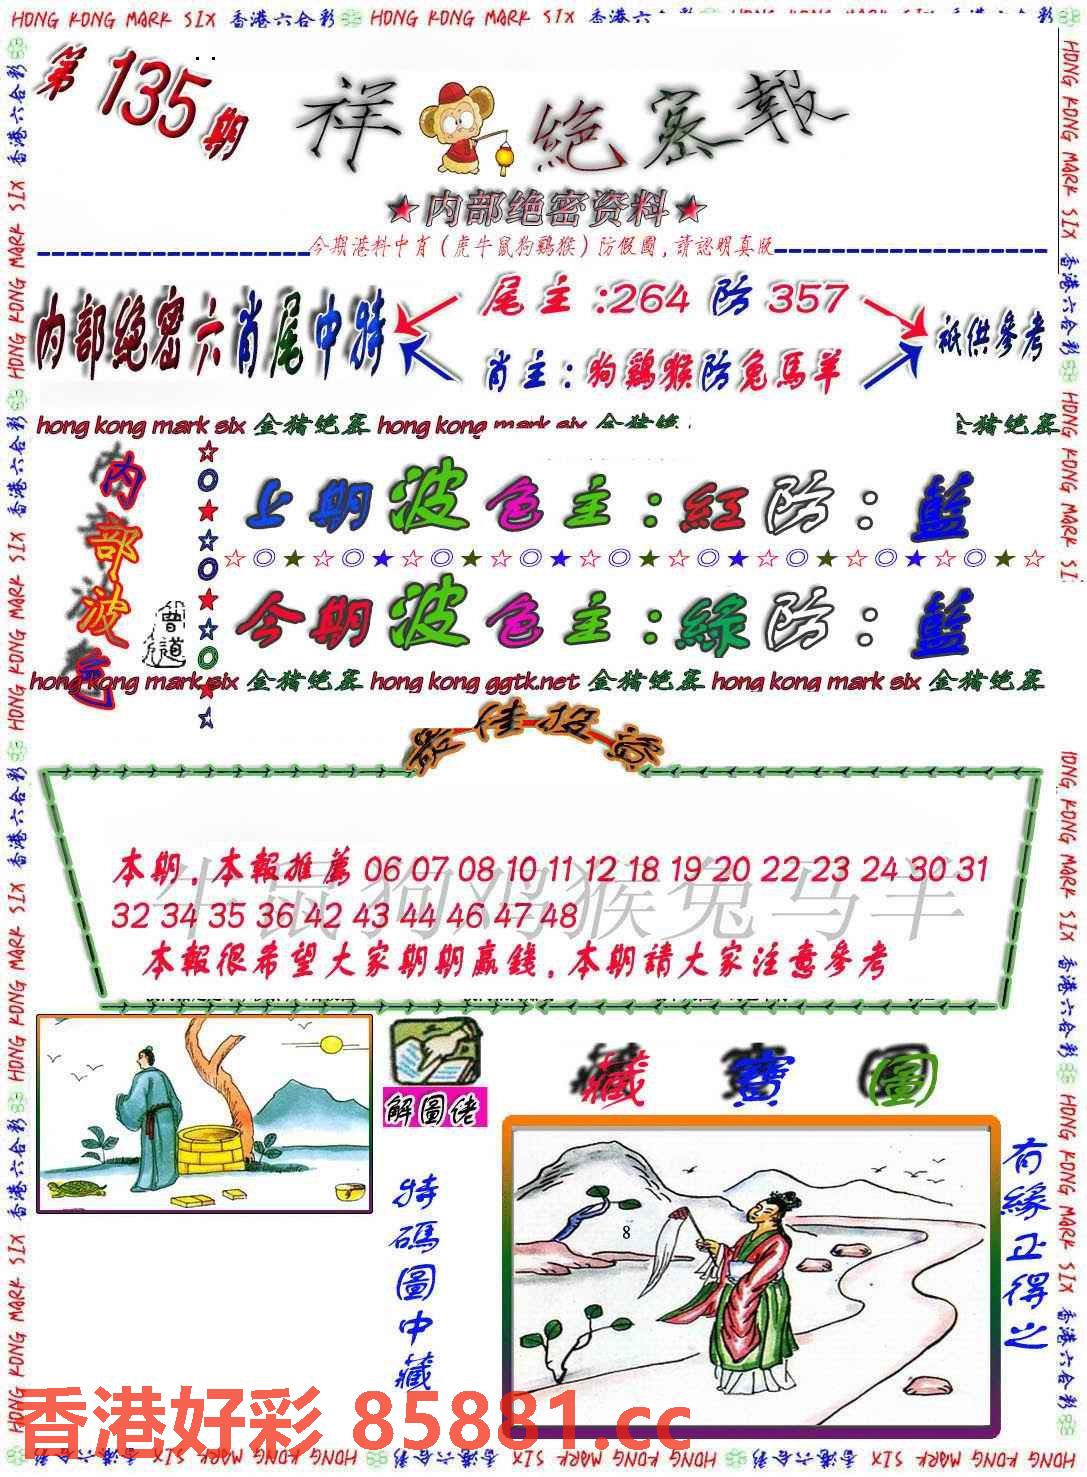 HONG KONG MARK SIX 香港六合彩 HONG KONG MARK SIX 香港六
第135期
祥 絕密報
★内部绝密资料★
今期港料中肖(虎牛鼠狗鷄猴)防假圖,請認明真版
内部绝密六肖尾中特
尾主:264 防 357
肖主:狗鷄猴防兔馬羊
祗供參考
hong kong mark six 金猪绝密 hong kong mark six 金猪绝密
内部波色
上期波色主:紅防:藍
今期波色主:綠防:藍
曾道
hong kong mark six 金猪绝密 hong kong ggtk.net 金猪绝密 hong kong mark six 金猪绝密
最佳投资
牛鼠狗鸡猴兔马羊
本期,本報推薦 06 07 08 10 11 12 18 19 20 22 23 24 30 31
32 34 35 36 42 43 44 46 47 48
本報很希望大家期期贏錢,本期請大家注意參考
解圖佬
特碼圖中藏
藏寶圖
8
有緣正得之
香港好彩 85881.cc
HONG KONG MARK SIX 香港六合彩 HONG KONG MARK SIX 香港六合彩 HONG KONG MARK SIX